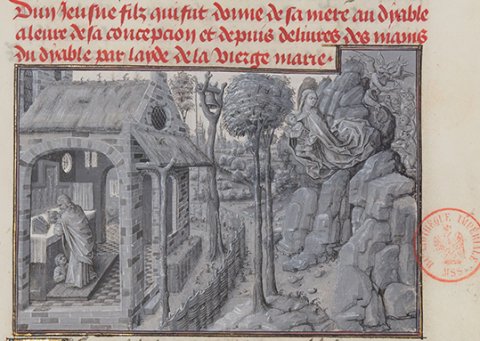 Dun Jeusne filz qui fut donne de sa mere au dyable
a leure de sa concepcion et depuis deliures des mains
du dyable par layde de la vierge marie.
BIBLIOTHEQUE IMPERIALE
MSS.